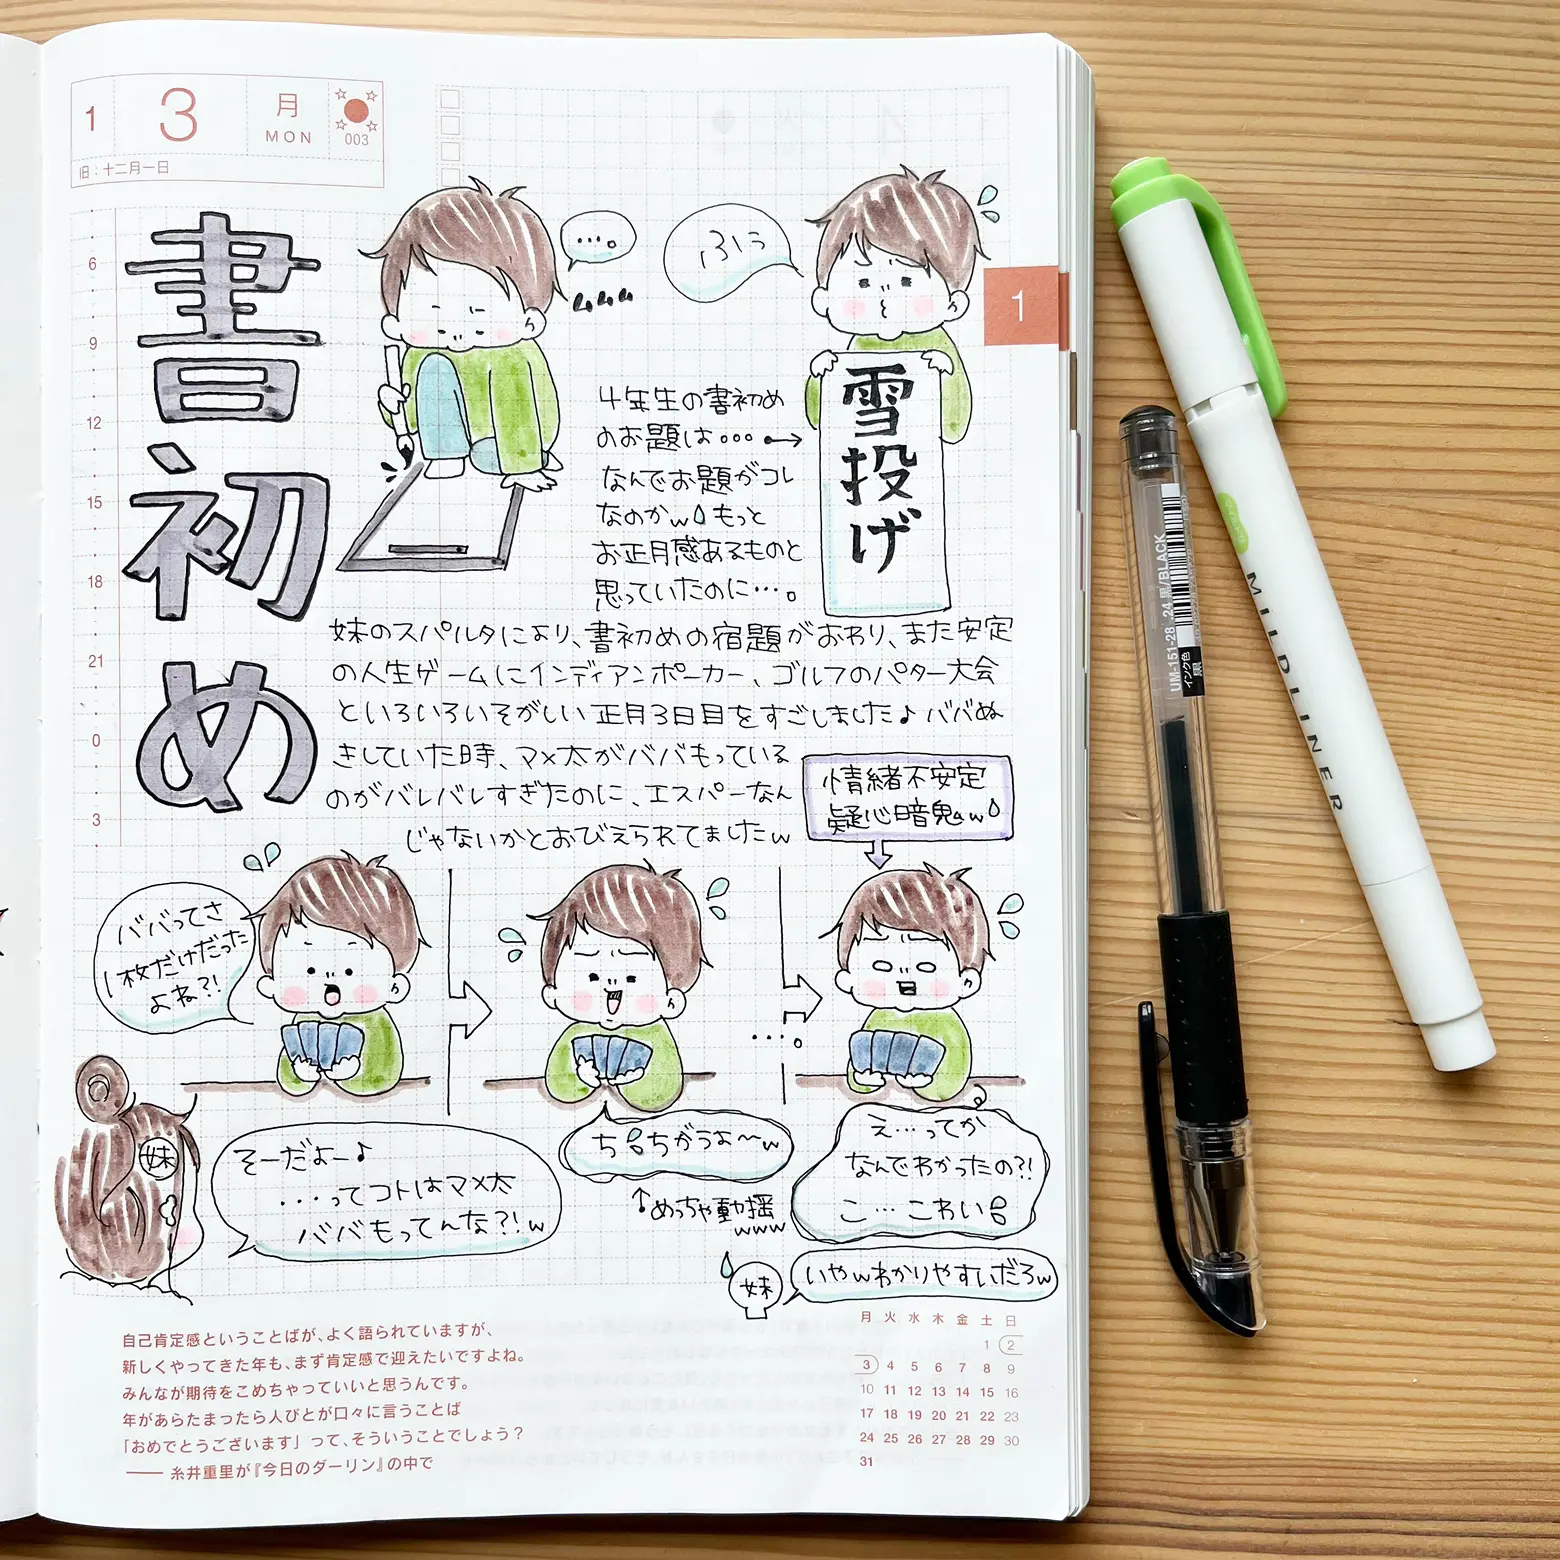 1 3 月 MON 003
旧：十二月一日
書初め
6
9
12
15
18
21
0
3
…。
ムムム
ふぅ
雪投げ
1
4年生の書初め
のお題は・・・→
なんでお題がコレ
なのかw もっと
お正月感あるものと
思っていたのに…。
妹のスパルタにより、書初めの宿題がおわり、また安定
の人生ゲームにインディアンポーカー、ゴルフのパター大会
といろいろいそがしい正月3日目をすごしました♪ババぬ
きしていた時、マメ太がババもっている
のがバレバレすぎたのに、エスパーなん
じゃないかとおびえられてましたw
情緒不安定
疑心暗鬼www
ババってさ
1枚だけだった
よね?!
妹
そーだよー♪
・・・ってコトはマメ太
ババもってんな?!w
ち ちがうよ〜w
↑めっちゃ動揺
www
…。
え…ってか
なんでわかったの?!
こ…こわい
妹
いやwわかりやすいだろw
自己肯定感ということばが、よく語られていますが、
新しくやってきた年も、まず肯定感で迎えたいですよね。
みんなが期待をこめちゃっていいと思うんです。
年があらたまったら人びとが口々に言うことば
「おめでとうございます」って、そういうことでしょう？
—— 糸井重里が『今日のダーリン』の中で
月 火 水 木 金 土 日
1 2
3 4 5 6 7 8 9
10 11 12 13 14 15 16
17 18 19 20 21 22 23
24 25 26 27 28 29 30
31
UM-151-28 24 黒/BLACK
インク色 黒
MILDLINER